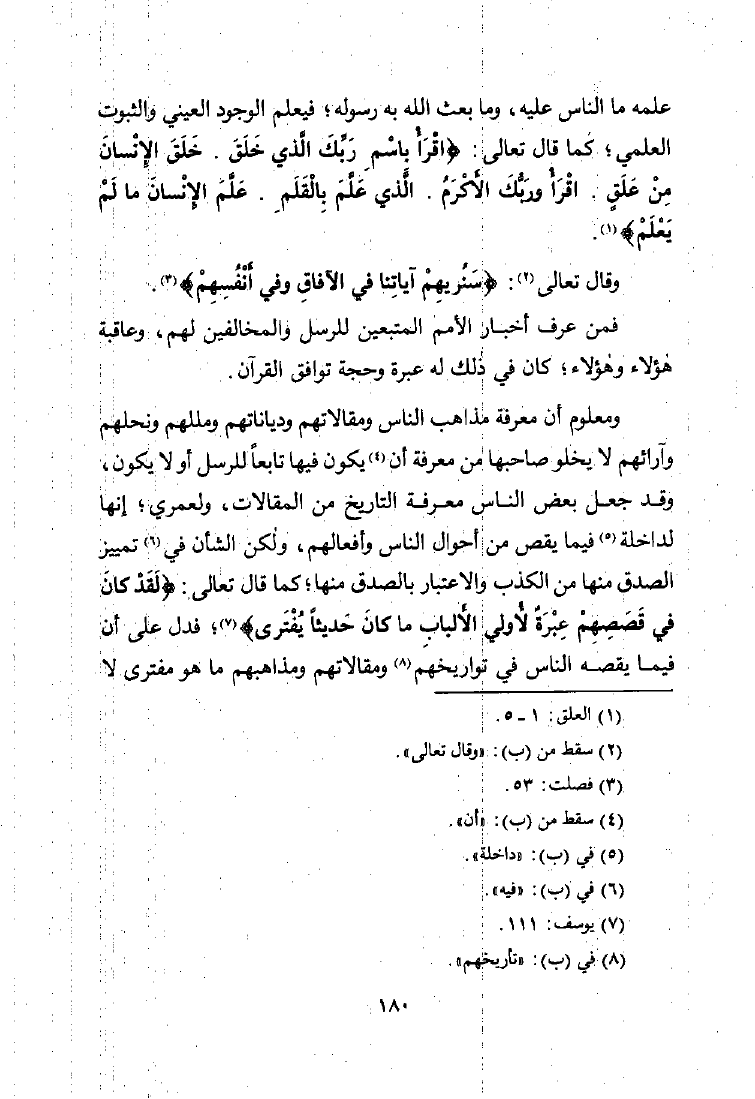 علمه ما الناس عليه، وما بعث الله به رسوله؛ فيعلم الوجود العيني والثبوت
العلمي؛ كما قال تعالى: ﴿اقْرَأْ بِاسْمِ رَبِّكَ الَّذي خَلَقَ . خَلَقَ الإِنْسانَ
مِنْ عَلَقٍ . اقْرَأْ ورَبُّكَ الأَكْرَمُ . الَّذي عَلَّمَ بِالْقَلَمِ . عَلَّمَ الإِنْسانَ ما لَمْ
يَعْلَمْ﴾(١).
وقال تعالى(٢): ﴿سَنُريهِمْ آياتِنا في الآفاقِ وفي أَنْفُسِهِمْ﴾(٣).
فمن عرف أخبار الأمم المتبعين للرسل والمخالفين لهم، وعاقبة
هٰؤلاء وهٰؤلاء؛ كان في ذٰلك له عبرة وحجة توافق القرآن.
ومعلوم أن معرفة مذاهب الناس ومقالاتهم ودياناتهم ومللهم ونحلهم
وآرائهم لا يخلو صاحبها من معرفة أن(٤) يكون فيها تابعاً للرسل أو لا يكون،
وقد جعل بعض الناس معرفة التاريخ من المقالات، ولعمري؛ إنها
لداخلة(٥) فيما يقص من أحوال الناس وأفعالهم، ولٰكن الشأن في(٦) تمييز
الصدق منها من الكذب والاعتبار بالصدق منها؛ كما قال تعالى: ﴿لَقَدْ كانَ
في قَصَصِهِمْ عِبْرَةٌ لأُولي الأَلْبابِ ما كانَ حَديثاً يُفْتَرى﴾(٧)؛ فدل على أن
فيما يقصه الناس في تواريخهم(٨) ومقالاتهم ومذاهبهم ما هو مفترى لا
(١) العلق: ١ ـ ٥.
(٢) سقط من (ب): «وقال تعالى».
(٣) فصلت: ٥٣.
(٤) سقط من (ب): «أن».
(٥) في (ب): «داخلة».
(٦) في (ب): «فيه».
(٧) يوسف: ١١١.
(٨) في (ب): «تأريخهم».
١٨٠